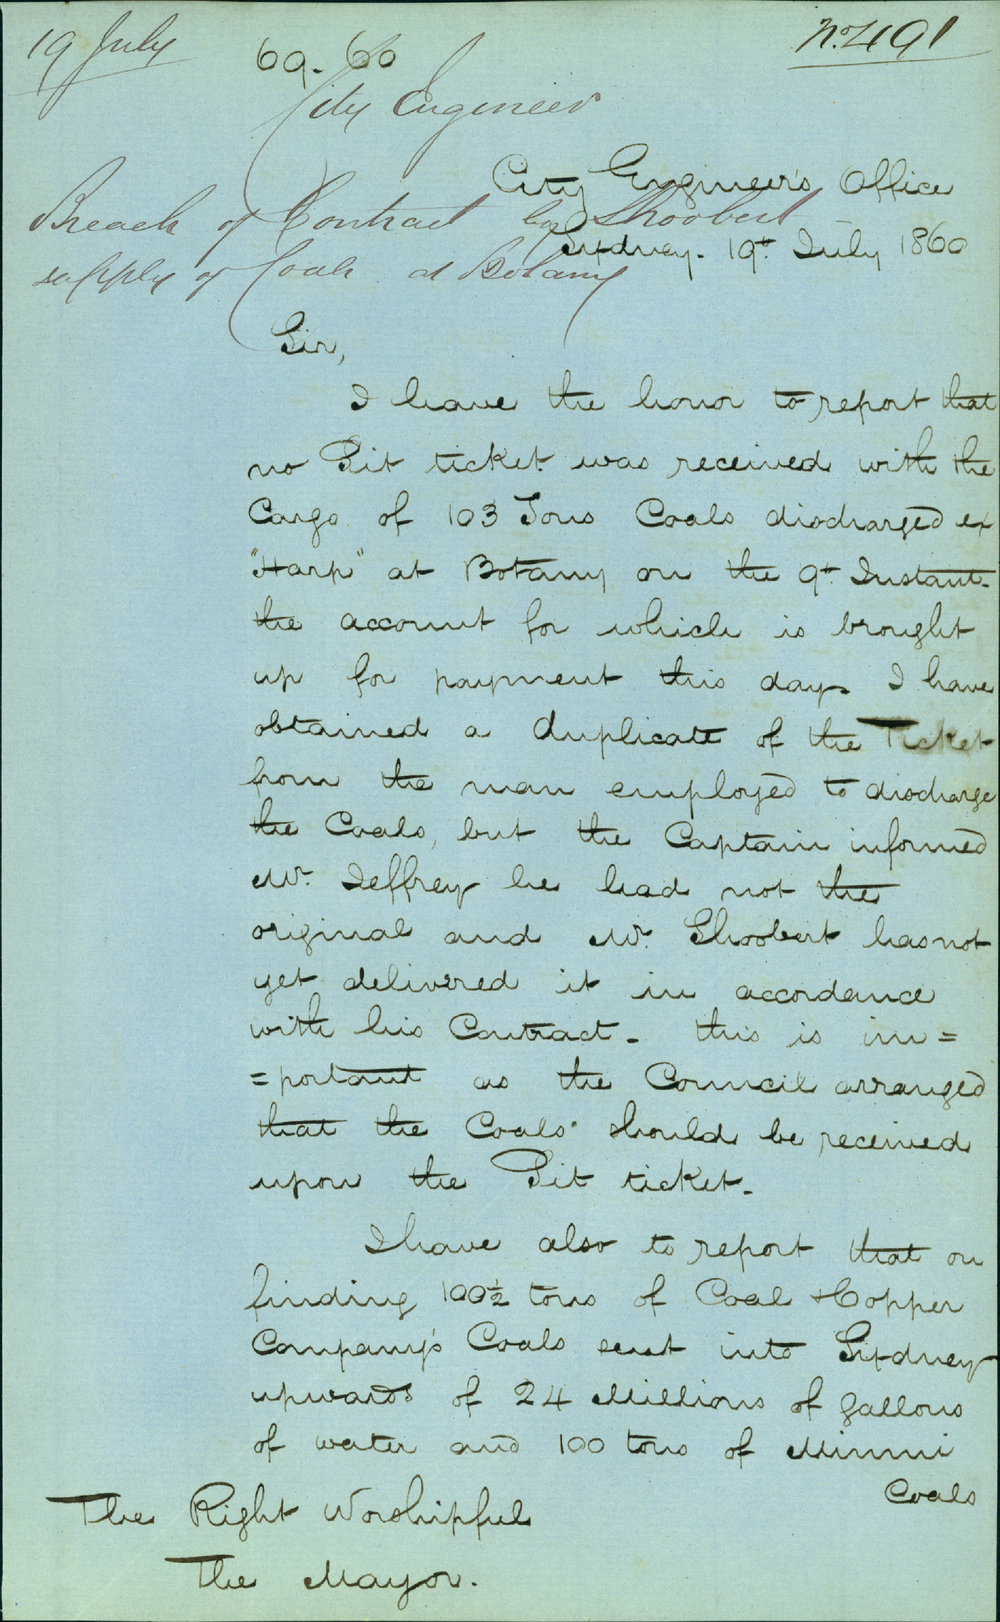 19 July
69. 60
No. 491
City Engineer
City Engineer's Office
Breach of Contract by Shoobert
Sydney. 19th July 1860
supply of Coals at Botany
Sir,
I have the honor to report that
no Pit ticket was received with the
Cargo of 103 Tons Coals discharged ex
"Harp" at Botany on the 9th Instant
the account for which is brought
up for payment this day. I have
obtained a duplicate of the Ticket
from the man employed to discharge
the Coals, but the Captain informed
Mr. Jeffrey he had not the
original and Mr. Shoobert has not
yet delivered it in accordance
with his Contract. this is im=
=portant as the Council arranged
that the Coals should be received
upon the Pit ticket.
I have also to report that on
finding 100½ tons of Coal & Copper
Company's Coals sent into Sydney
upwards of 24 Millions of gallons
of water and 100 tons of Minmi
Coals
The Right Worshipful
The Mayor.